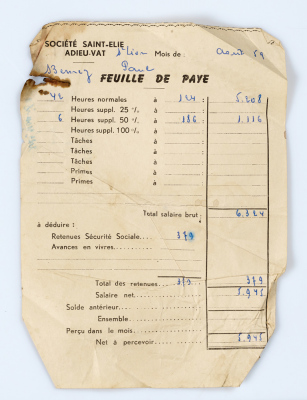 SOCIÉTÉ SAINT-ELIE
ADIEU-VAT St Elie Mois de Août 59
Paul
FEUILLE DE PAYE
42 Heures normales à 124 : 5.208
Heures suppl. 25 °/° à :
6 Heures suppl. 50 °/° à 186 : 1.116
Heures suppl. 100 °/° à
Tâches à
Tâches à
Tâches à
Primes à
Primes à
Total salaire brut : 6.324
à déduire :
Retenues Sécurité Sociale.... 379
Avances en vivres
Total des retenues 379 379
Salaire net 5.945
Solde antérieur
Ensemble
Perçu dans le mois
Net à percevoir 5.945